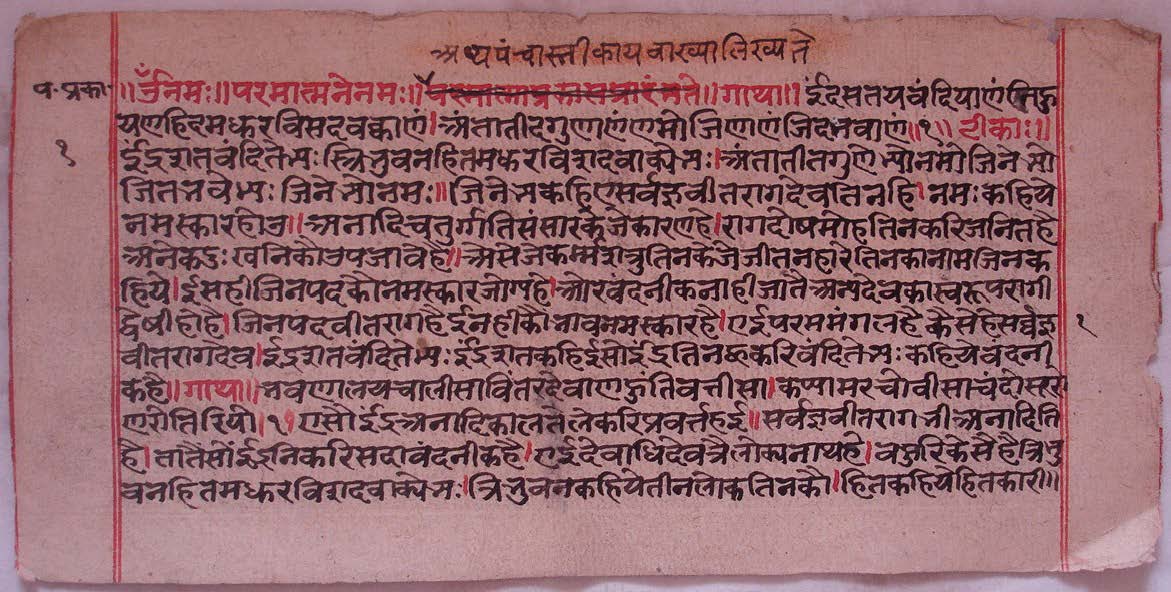 अथ पंचास्तीकाय वाख्या लिख्यते
प. प्रका.
॥ॐनमः॥परमात्मनेनमः॥ परमात्माप्रकासप्रारंभते॥गाथा॥ इंदसतयवंदियाणंतिहु
यणहिदमधुरविसदवक्काणं।अंतातीदगुणाणंणमोजिणाणंजिदभवाणं॥१॥टीकाः॥
१
इंद्रशतवंदितेभ्यः स्त्रिभुवनहितमधुरविशदवाक्येभ्यः।अंतातीतगुणेभ्योनमोजिनेभ्यो
जितभवेभ्यः जिनेभ्योनमः॥जिनेभ्यकहिएसर्वज्ञवीतरागदेवतिनहि।नमः कहिये
नमस्कारहोउ॥अनादिचतुर्ग्गतिसंसारकेजेकारणहै।रागदोषमोहतिनकरिजनितहै
अनेकदुःखनिकौउपजावैहै॥अैसेजेकर्म्मशत्रुतिनकेजेजीतनहारेतिनकानामजिनक
हिये।इंसहीजिनपदकौनमस्कारजोग्यहै।औरवंदनीकनाहीजातैअन्यदेवकास्वरूपरागी
द्वेषीहोहै।जिनपदवीतरागहैइनहीकौभावनमस्कारहै।एईपरममंगलहैकैसेहैसर्व्वज्ञ
१
वीतरागदेव।इंद्रशतवंदितेभ्यः इंद्रशतकहिईसोइंद्रतिनहुकरिवंदितेभ्यः कहियेवंदनी
कहै॥गाथा॥भवणालयचालीसावितरदेवाणहुंतिवत्तीसा।कप्पामरचोवीसाचंदोसूरो
णरोतिरियो।१।एसौइंद्रअनादिकालतेलेकरिप्रवर्त्तहई॥सर्वज्ञवीतरागभीअनादिति
है।तातैंसोइंद्रनिकरिसदावंदनीकहै।एईदेवाधिदेवत्रैलोक्यनाथहै।वहुरिकैसेहैत्रिभु
वनहितमधुरविशदवाक्येभ्यः।त्रिभुवनकहियेतीनलोकतिनकौ।हितकहियेहितकारी॥